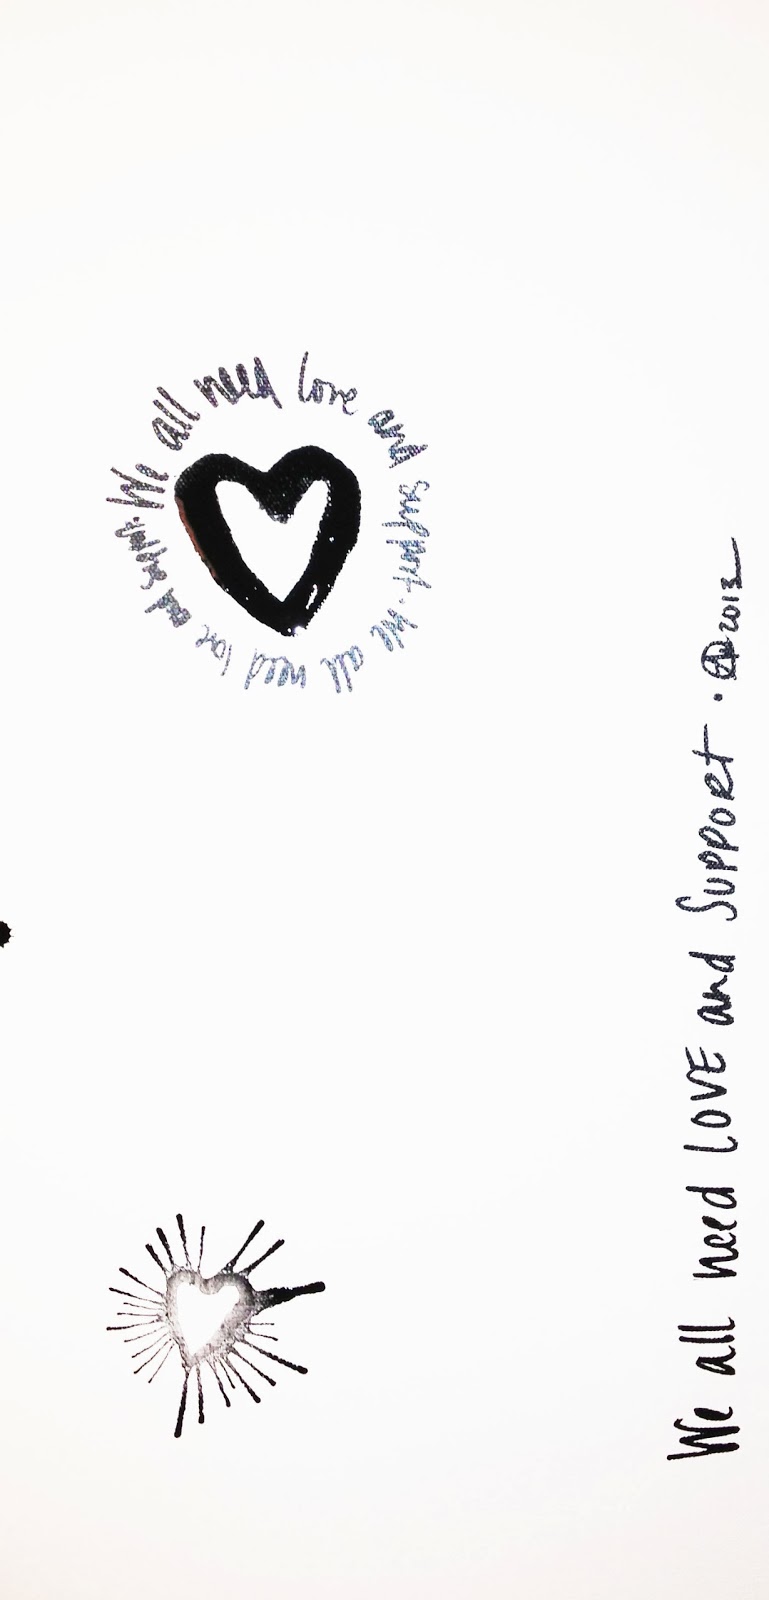 We all need love and support. We all need love and support.
We all need LOVE and SUPPORT . 2013